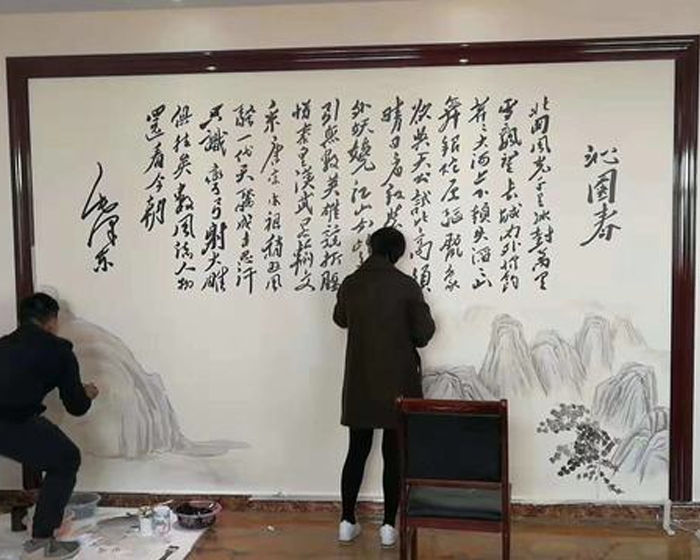 沁園春
北国风光千里冰封万里
雪飘望长城内外惟余
莽々大河上下顿失滔々山
舞银蛇原驰蜡象
欲与天公试比高须
晴日看红装
外妖娆江山如此
引无数英雄竞折腰
惜秦皇汉武略输文
采唐宗宋祖稍逊风
骚一代天骄成吉思汗
只識弯弓射大雕
俱往矣数风流人物
還看今朝
毛泽东